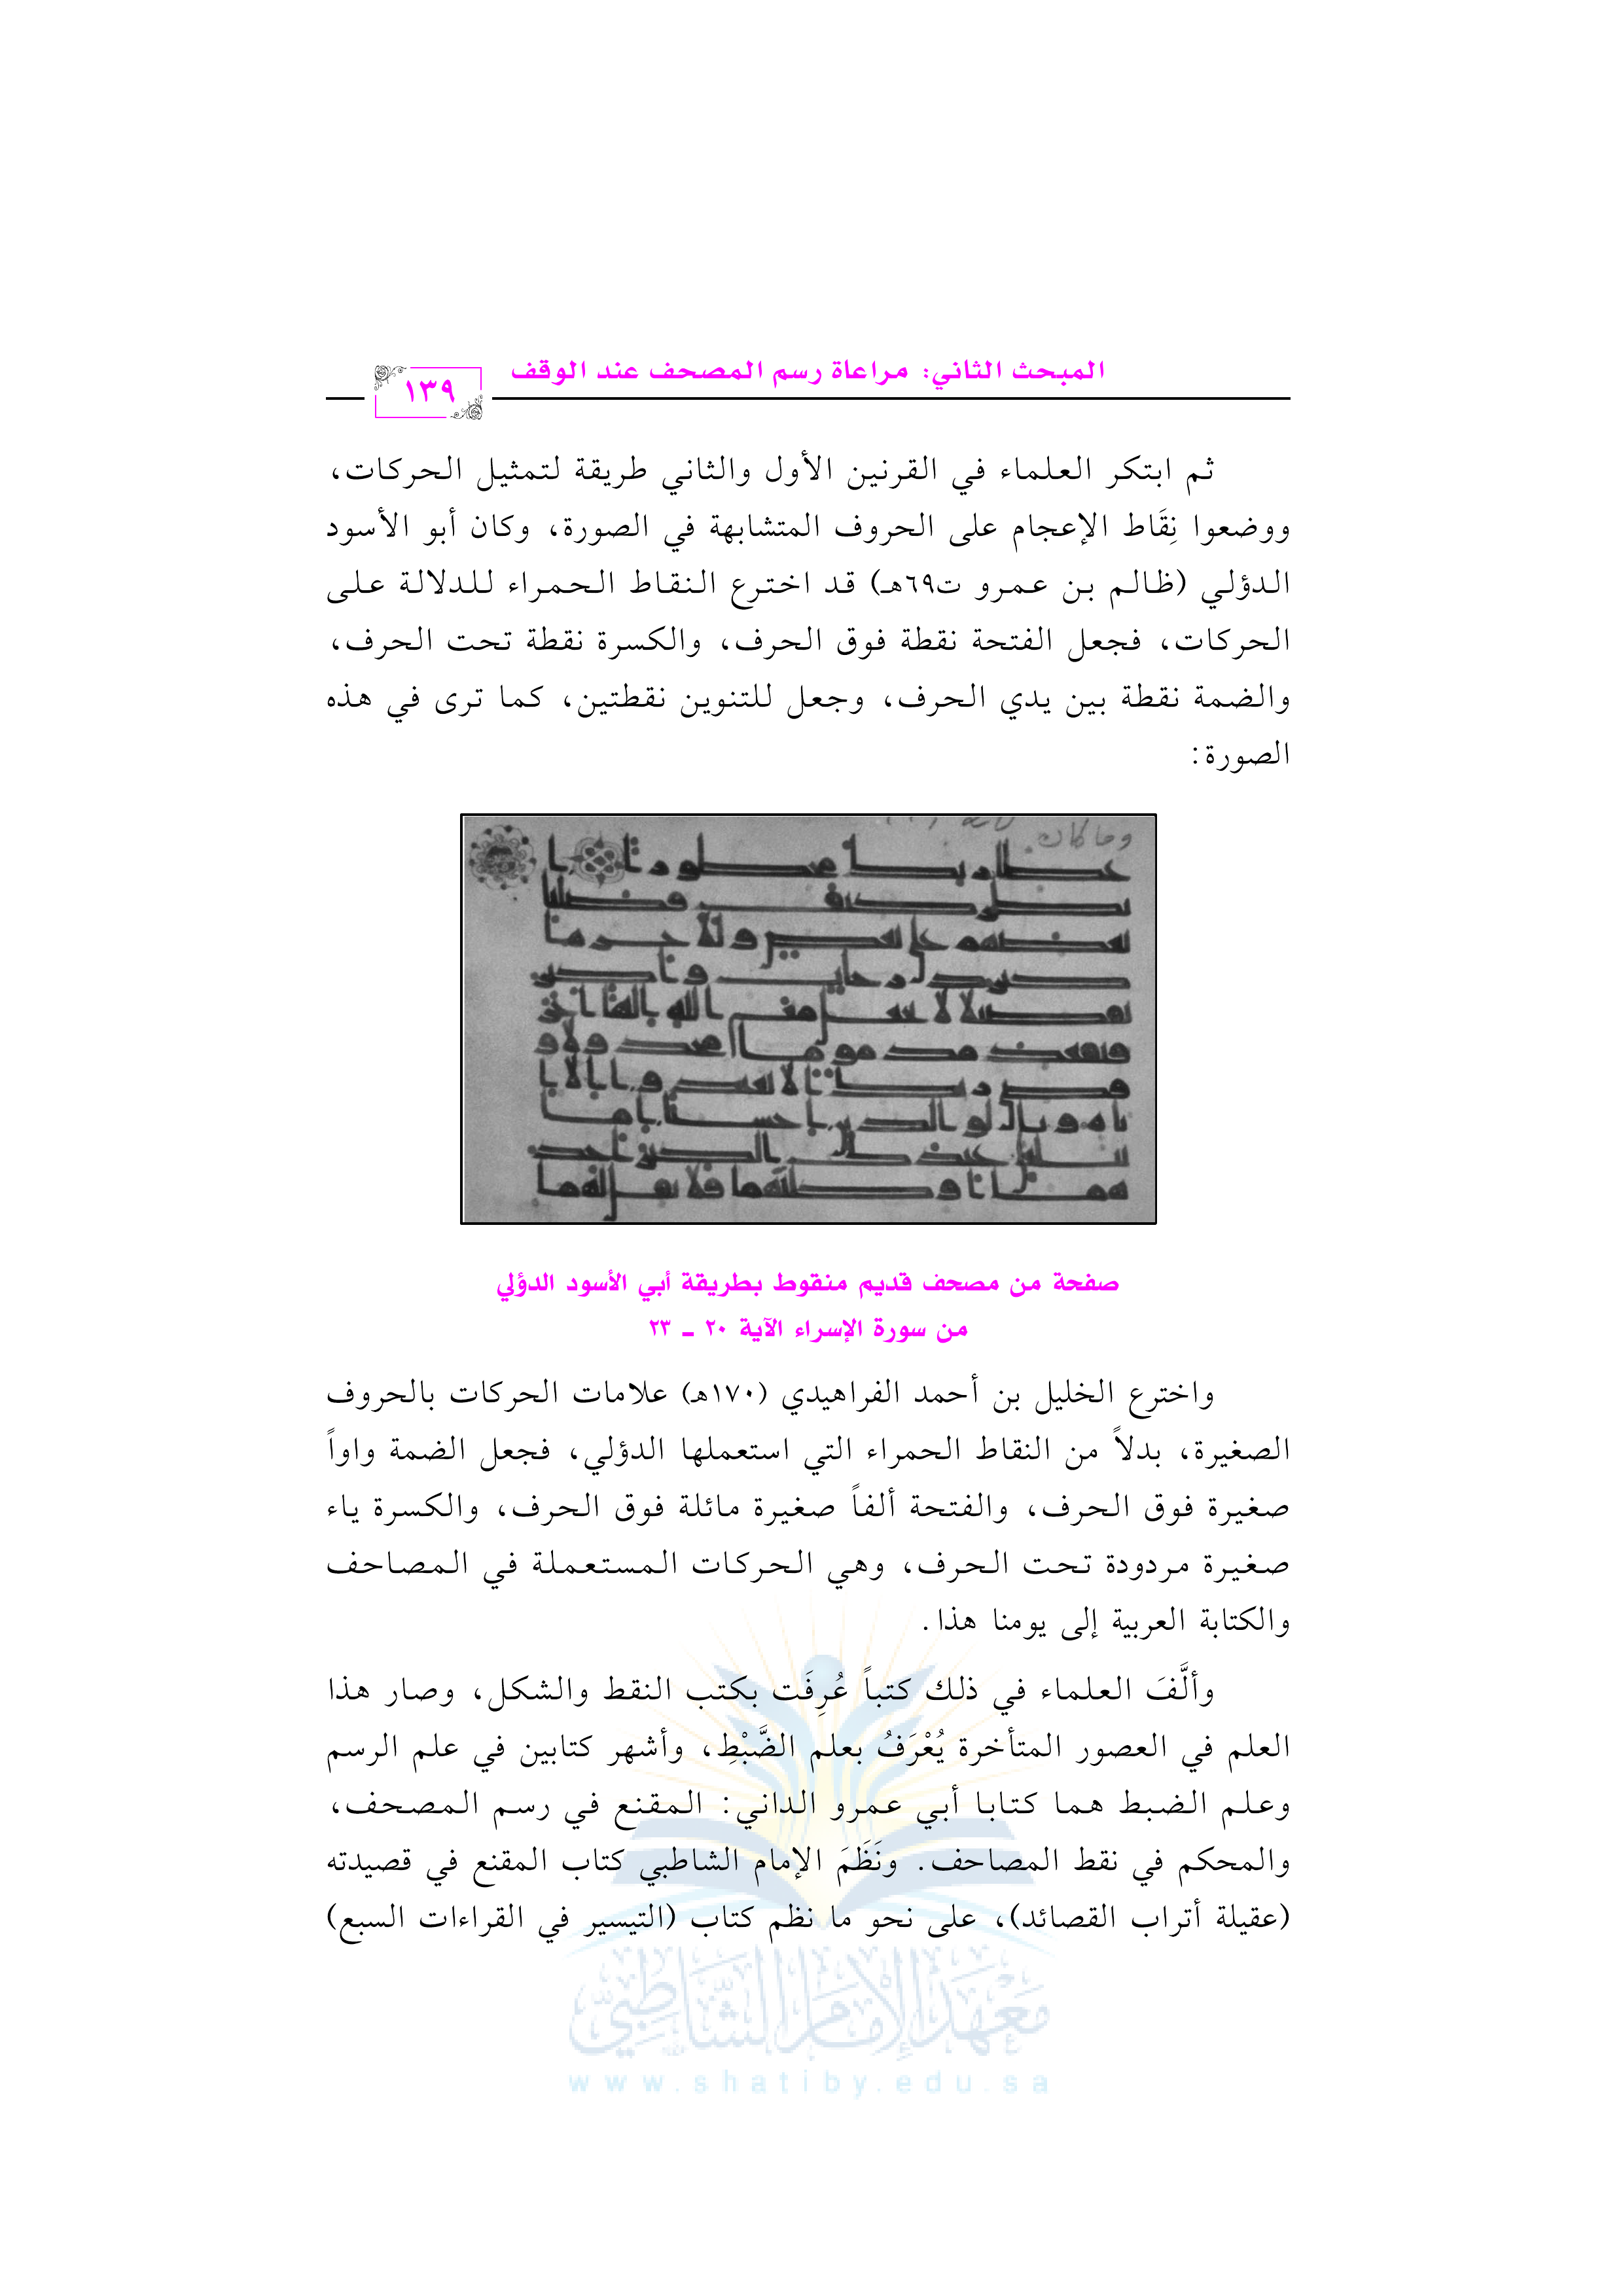 المبحث الثاني: مراعاة رسم المصحف عند الوقف
١٣٩
ثم ابتكر العلماء في القرنين الأول والثاني طريقة لتمثيل الحركات،
ووضعوا نِقَاط الإعجام على الحروف المتشابهة في الصورة، وكان أبو الأسود
الدؤلي (ظالم بن عمرو ت٦٩هـ) قد اخترع النقاط الحمراء للدلالة على
الحركات، فجعل الفتحة نقطة فوق الحرف، والكسرة نقطة تحت الحرف،
والضمة نقطة بين يدي الحرف، وجعل للتنوين نقطتين، كما ترى في هذه
الصورة:
وما كان
صفحة من مصحف قديم منقوط بطريقة أبي الأسود الدؤلي
من سورة الإسراء الآية ٢٠ ـ ٢٣
واخترع الخليل بن أحمد الفراهيدي (١٧٠هـ) علامات الحركات بالحروف
الصغيرة، بدلاً من النقاط الحمراء التي استعملها الدؤلي، فجعل الضمة واواً
صغيرة فوق الحرف، والفتحة ألفاً صغيرة مائلة فوق الحرف، والكسرة ياء
صغيرة مردودة تحت الحرف، وهي الحركات المستعملة في المصاحف
والكتابة العربية إلى يومنا هذا.
وألَّفَ العلماء في ذلك كتباً عُرِفَت بكتب النقط والشكل، وصار هذا
العلم في العصور المتأخرة يُعْرَفُ بعلم الضَّبْطِ، وأشهر كتابين في علم الرسم
وعلم الضبط هما كتابا أبي عمرو الداني: المقنع في رسم المصحف،
والمحكم في نقط المصاحف. ونَظَمَ الإمام الشاطبي كتاب المقنع في قصيدته
(عقيلة أتراب القصائد)، على نحو ما نظم كتاب (التيسير في القراءات السبع)
معهد الإمام الشاطبي
www.shatiby.edu.sa